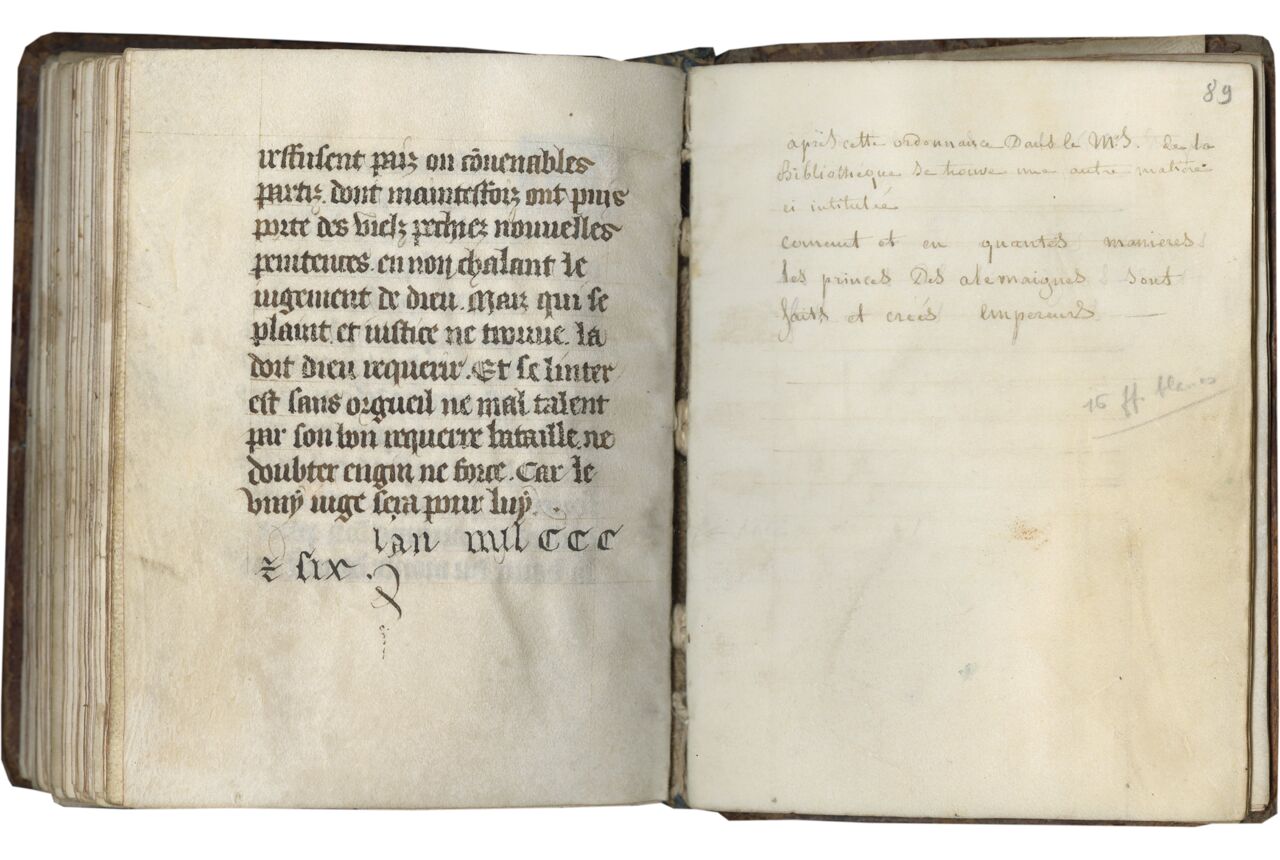 reffusent paiz ou cōuenables
partiz. dont maintesfoiz ont puis
porte des vielz pechiez nouuelles
penitences. en non chalant le
iugement de dieu. Maiz qui se
plaint et iustice ne trouue. la
doit dieu requerir. Et se linter
est sans orgueil ne mal talent
par son bon requerre bataille. ne
doubter engin ne force. Car le
vray iuge sera pour luy.
lan mil CCC
⁊ six.
89
après cette ordonnance Dans le Mrs. de la
Bibliothèque se trouve une autre matière
ci intitulée
coment et en quantes manieres
les princes Des alemaignes sont
faits et creés Empereurs
16 ff. blancs